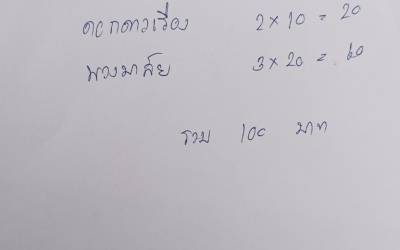 ดอกดาวเรื่อง 2 × 10 = 20
พวงมาลัย 3 × 20 = 60
รวม 100 บาท